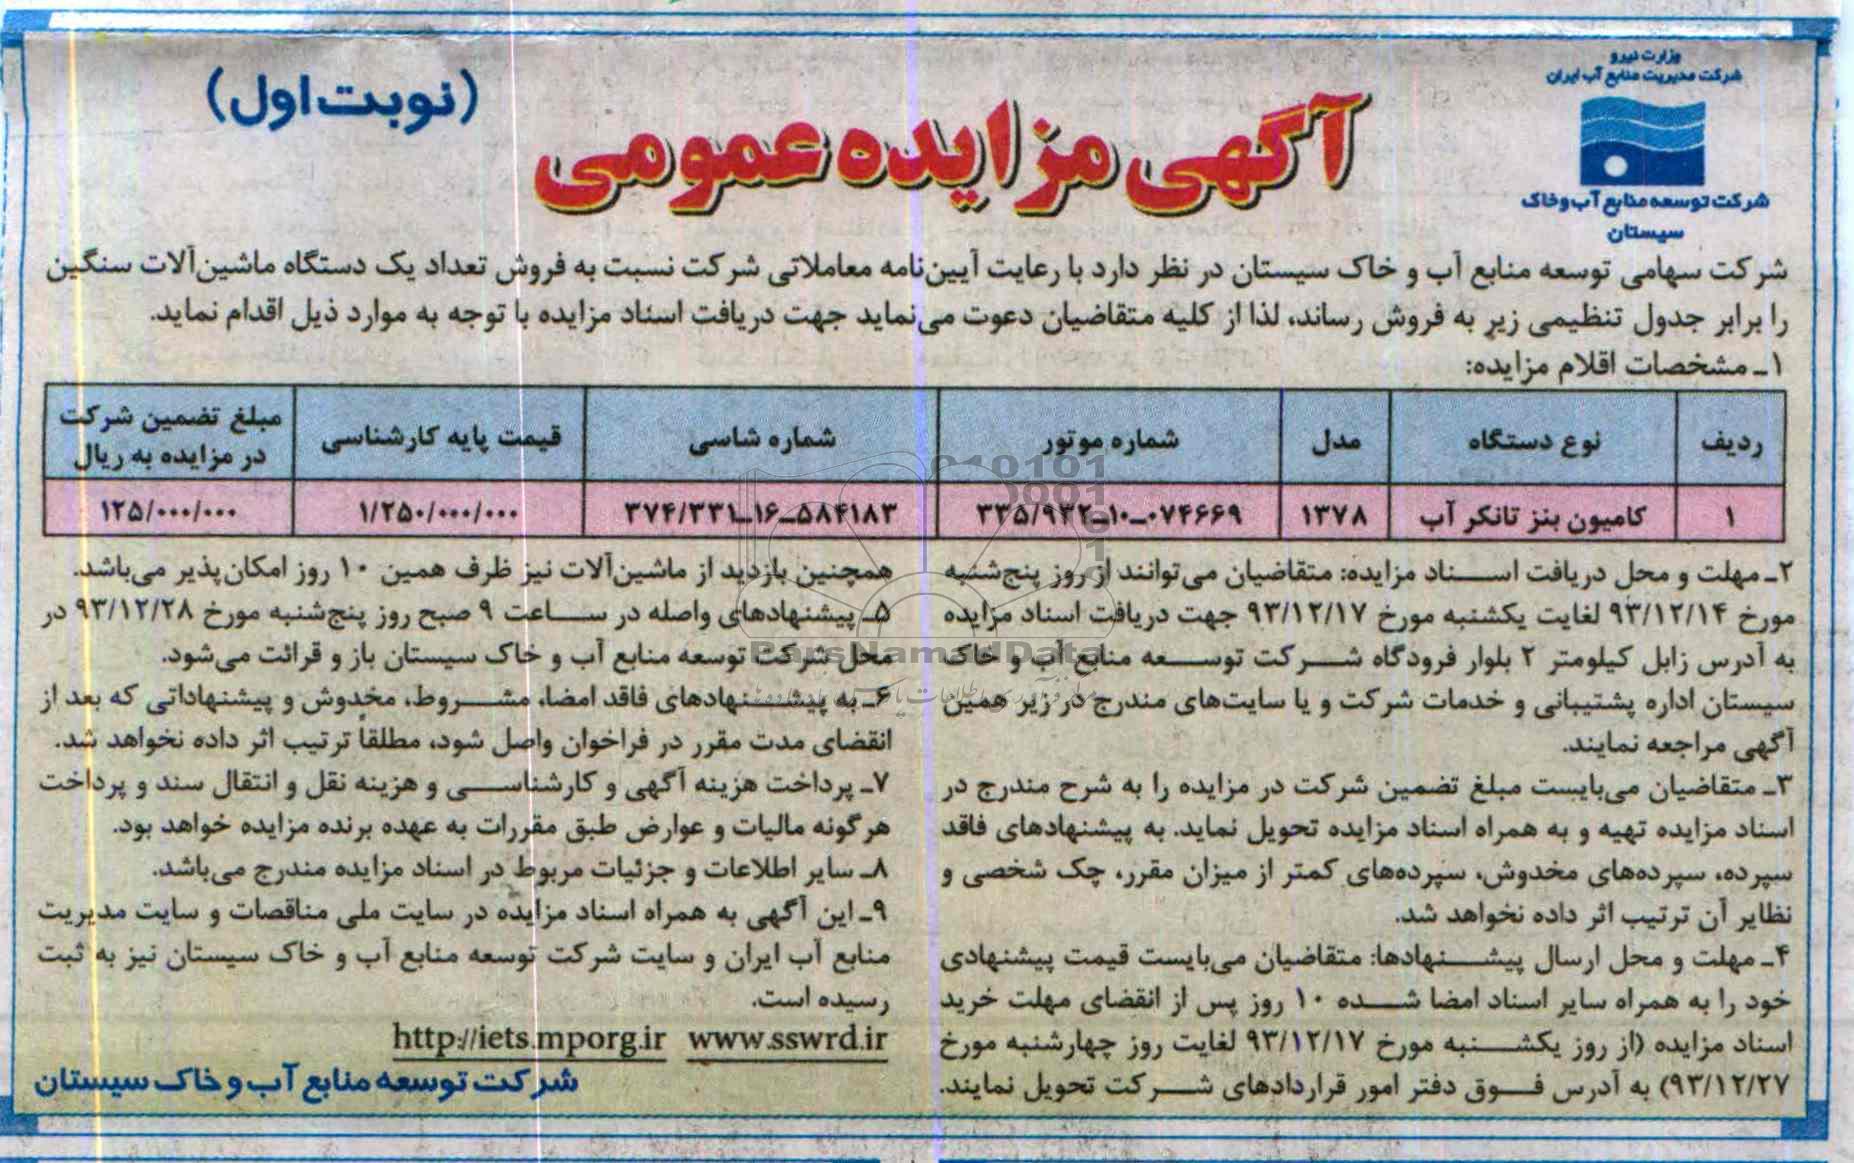 وزارت نیرو
شرکت مدیریت منابع آب ایران
شرکت توسعه منابع آب و خاک
سیستان
آگهی مزایده عمومی
(نوبت اول)
شرکت سهامی توسعه منابع آب و خاک سیستان در نظر دارد با رعایت آیین‌نامه معاملاتی شرکت نسبت به فروش تعداد یک دستگاه ماشین‌آلات سنگین
را برابر جدول تنظیمی زیر به فروش رساند، لذا از کلیه متقاضیان دعوت می‌نماید جهت دریافت اسناد مزایده با توجه به موارد ذیل اقدام نماید.
۱ـ مشخصات اقلام مزایده:
ردیف نوع دستگاه مدل شماره موتور شماره شاسی قیمت پایه کارشناسی مبلغ تضمین شرکت
در مزایده به ریال
۱ کامیون بنز تانکر آب ۱۳۷۸ ۳۳۵/۹۳۲ـ۱۰ـ۰۷۴۶۶۹ ۳۷۴/۳۳۱ـ۱۶ـ۵۸۴۱۸۳ ۱/۲۵۰/۰۰۰/۰۰۰ ۱۲۵/۰۰۰/۰۰۰
۲ـ مهلت و محل دریافت اسـناد مزایده: متقاضیان می‌توانند از روز پنج‌شنبه
مورخ ۹۳/۱۲/۱۴ لغایت یکشنبه مورخ ۹۳/۱۲/۱۷ جهت دریافت اسناد مزایده
به آدرس زابل کیلومتر ۲ بلوار فرودگاه شـرکت توسـعه منابع آب و خاک
سیستان اداره پشتیبانی و خدمات شرکت و یا سایت‌های مندرج در زیر همین
آگهی مراجعه نمایند.
۳ـ متقاضیان می‌بایست مبلغ تضمین شرکت در مزایده را به شرح مندرج در
اسناد مزایده تهیه و به همراه اسناد مزایده تحویل نماید. به پیشنهادهای فاقد
سپرده، سپرده‌های مخدوش، سپرده‌های کمتر از میزان مقرر، چک شخصی و
نظایر آن ترتیب اثر داده نخواهد شد.
۴ـ مهلت و محل ارسال پیشـنهادها: متقاضیان می‌بایست قیمت پیشنهادی
خود را به همراه سایر اسناد امضا شـده ۱۰ روز پس از انقضای مهلت خرید
اسناد مزایده (از روز یکشـنبه مورخ ۹۳/۱۲/۱۷ لغایت روز چهارشنبه مورخ
۹۳/۱۲/۲۷) به آدرس فـوق دفتر امور قراردادهای شـرکت تحویل نمایند.
همچنین بازدید از ماشین‌آلات نیز ظرف همین ۱۰ روز امکان‌پذیر می‌باشد.
۵ـ پیشنهادهای واصله در سـاعت ۹ صبح روز پنج‌شنبه مورخ ۹۳/۱۲/۲۸ در
محل شرکت توسعه منابع آب و خاک سیستان باز و قرائت می‌شود.
۶ـ به پیشـنهادهای فاقد امضا، مشـروط، مخدوش و پیشنهاداتی که بعد از
انقضای مدت مقرر در فراخوان واصل شود، مطلقاً ترتیب اثر داده نخواهد شد.
۷ـ پرداخت هزینه آگهی و کارشناسـی و هزینه نقل و انتقال سند و پرداخت
هرگونه مالیات و عوارض طبق مقررات به عهده برنده مزایده خواهد بود.
۸ـ سایر اطلاعات و جزئیات مربوط در اسناد مزایده مندرج می‌باشد.
۹ـ این آگهی به همراه اسناد مزایده در سایت ملی مناقصات و سایت مدیریت
منابع آب ایران و سایت شرکت توسعه منابع آب و خاک سیستان نیز به ثبت
رسیده است.
http://iets.mporg.ir www.sswrd.ir
شرکت توسعه منابع آب و خاک سیستان
ParsNamadData